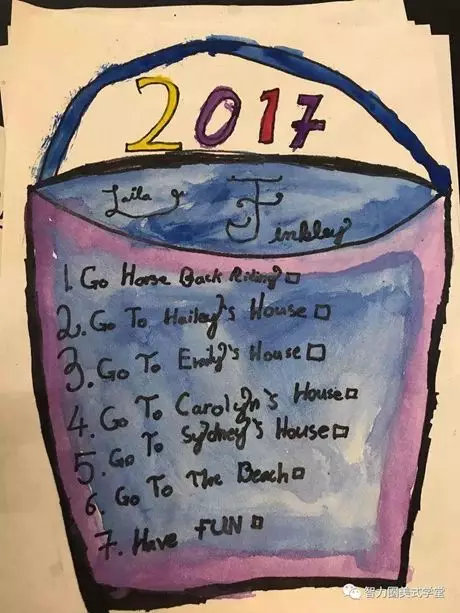 2017
Laila
Tinkley
1. Go Horse Back Riding
2. Go To Hailey's House
3. Go To Emily's House
4. Go To Carolyn's House
5. Go To Sydney's House
6. Go To The Beach
7. Have FUN
智力圆美式学堂